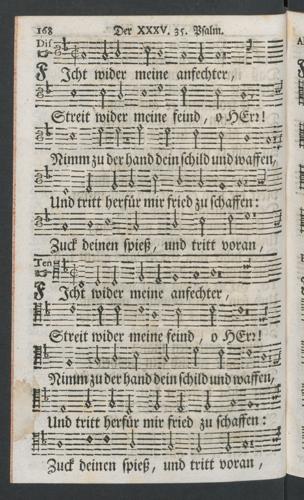 168 Der XXXV. 35. Psalm.
Dis
FIcht wider meine anfechter,
Streit wider meine feind, o HErr!
Nimm zu der hand dein schild und waffen,
Und tritt herfür mir fried zu schaffen:
Zuck deinen spieß, und tritt voran,
Ten
FIcht wider meine anfechter,
Streit wider meine feind, o HErr!
Nimm zu der hand dein schild und waffen,
Und tritt herfür mir fried zu schaffen:
Zuck deinen spieß, und tritt voran,